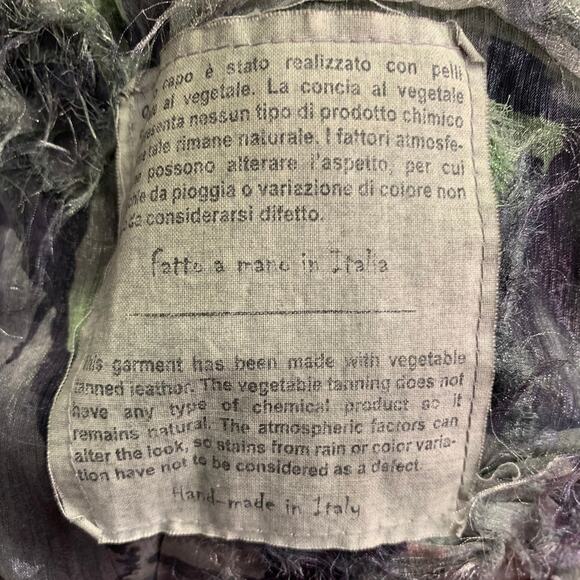 capo è stato realizzato con pelli
al vegetale. La concia al vegetale
nessun tipo di prodotto chimico
tale rimane naturale. I fattori atmosfe-
possono alterare l'aspetto, per cui
da pioggia o variazione di colore non
da considerarsi difetto.
Fatto a mano in Italia
This garment has been made with vegetable
tanned leather. The vegetable tanning does not
have any type of chemical product so it
remains natural. The atmospheric factors can
alter the look, so stains from rain or color varia-
tion have not to be considered as a defect.
Hand-made in Italy